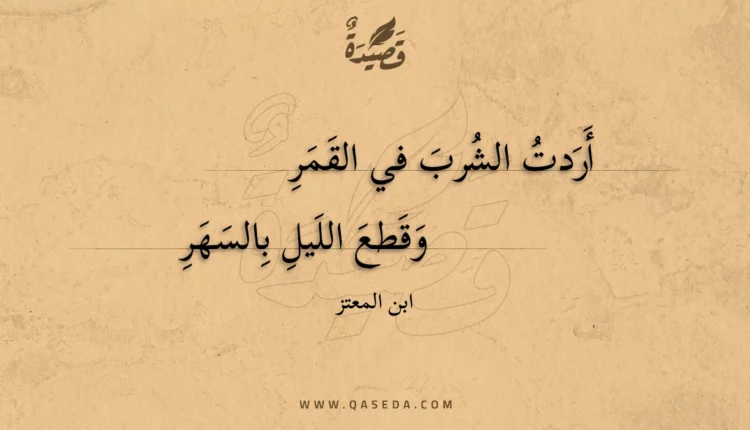 قَصِيْدَةٌ
أَرَدتُ الشُربَ في القَمَرِ
وَقَطعَ اللَيلِ بِالسَهَرِ
ابن المعتز
WWW.QASEDA.COM